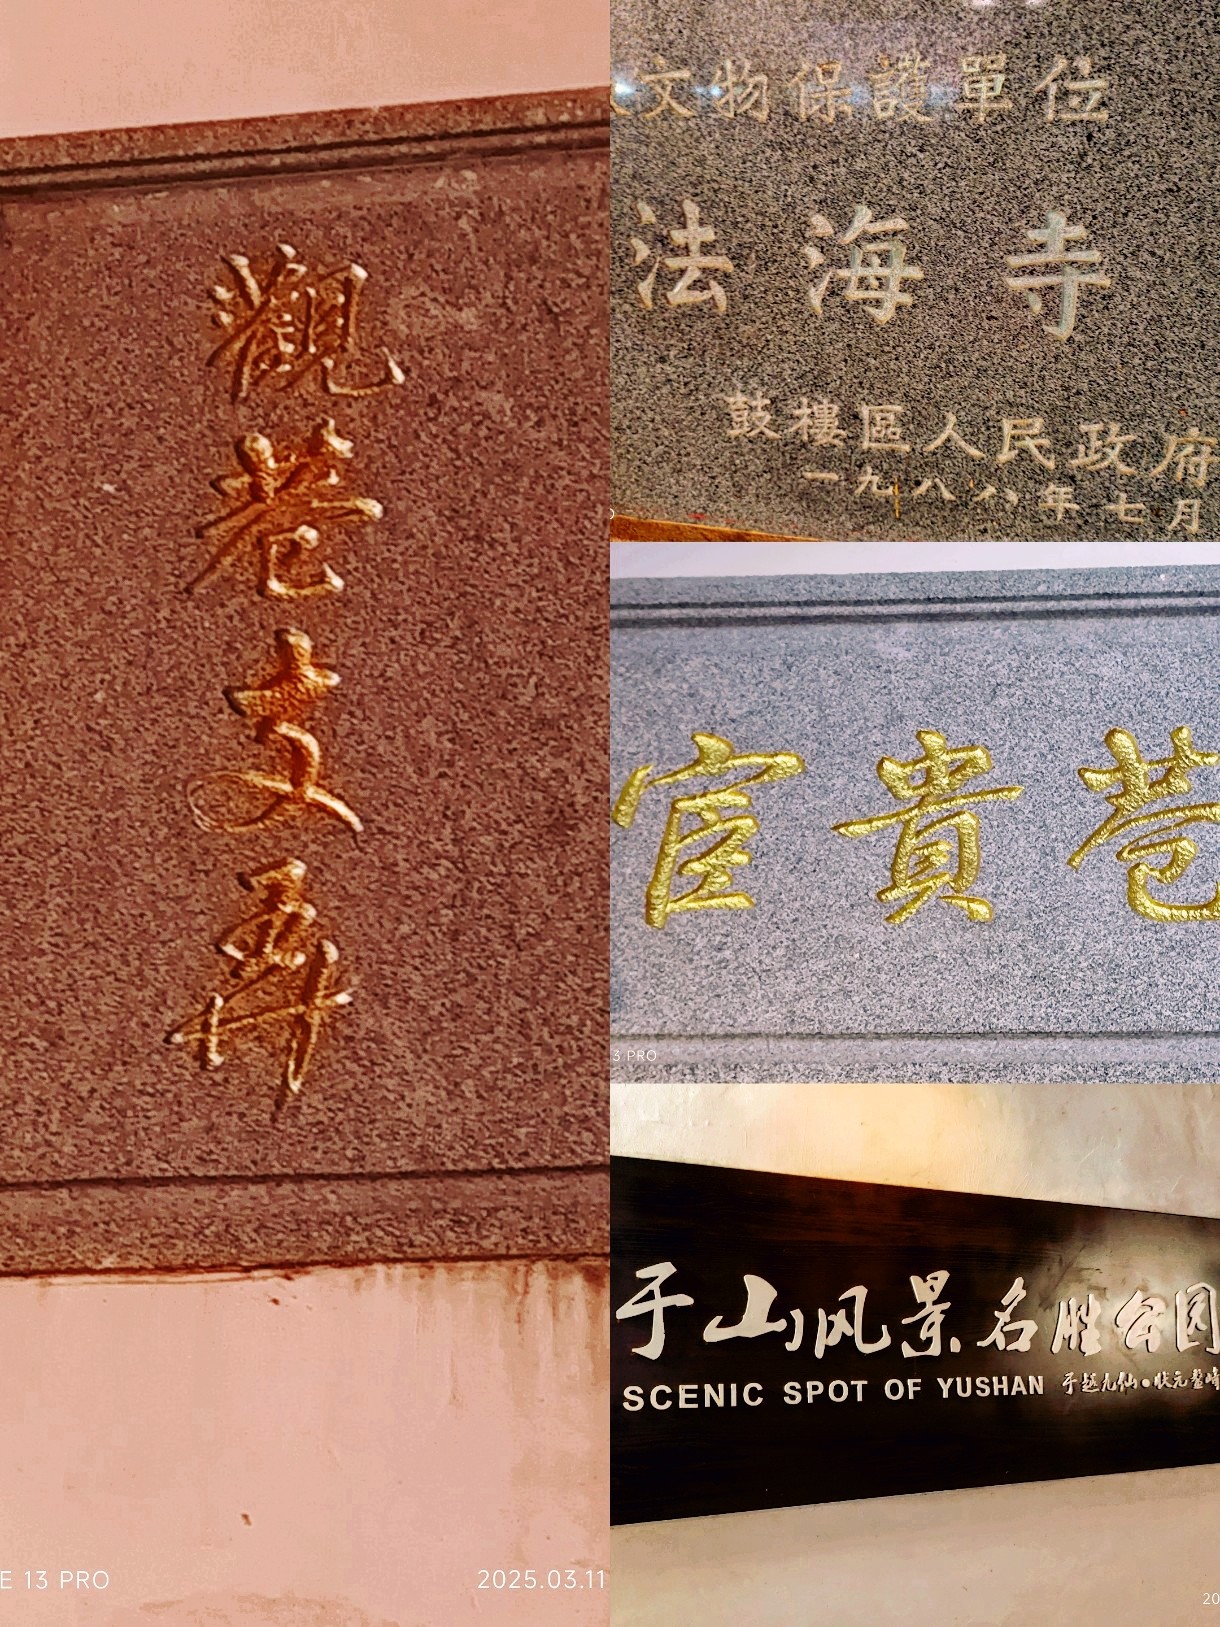 觀巷支弄
E 13 PRO
2025.03.11
文物保護單位
法海寺
鼓樓區人民政府
一九八八年七月
宦貴巷
3 PRO
于山风景名胜公园
SCENIC SPOT OF YUSHAN 于越九仙•状元鳌峰
20